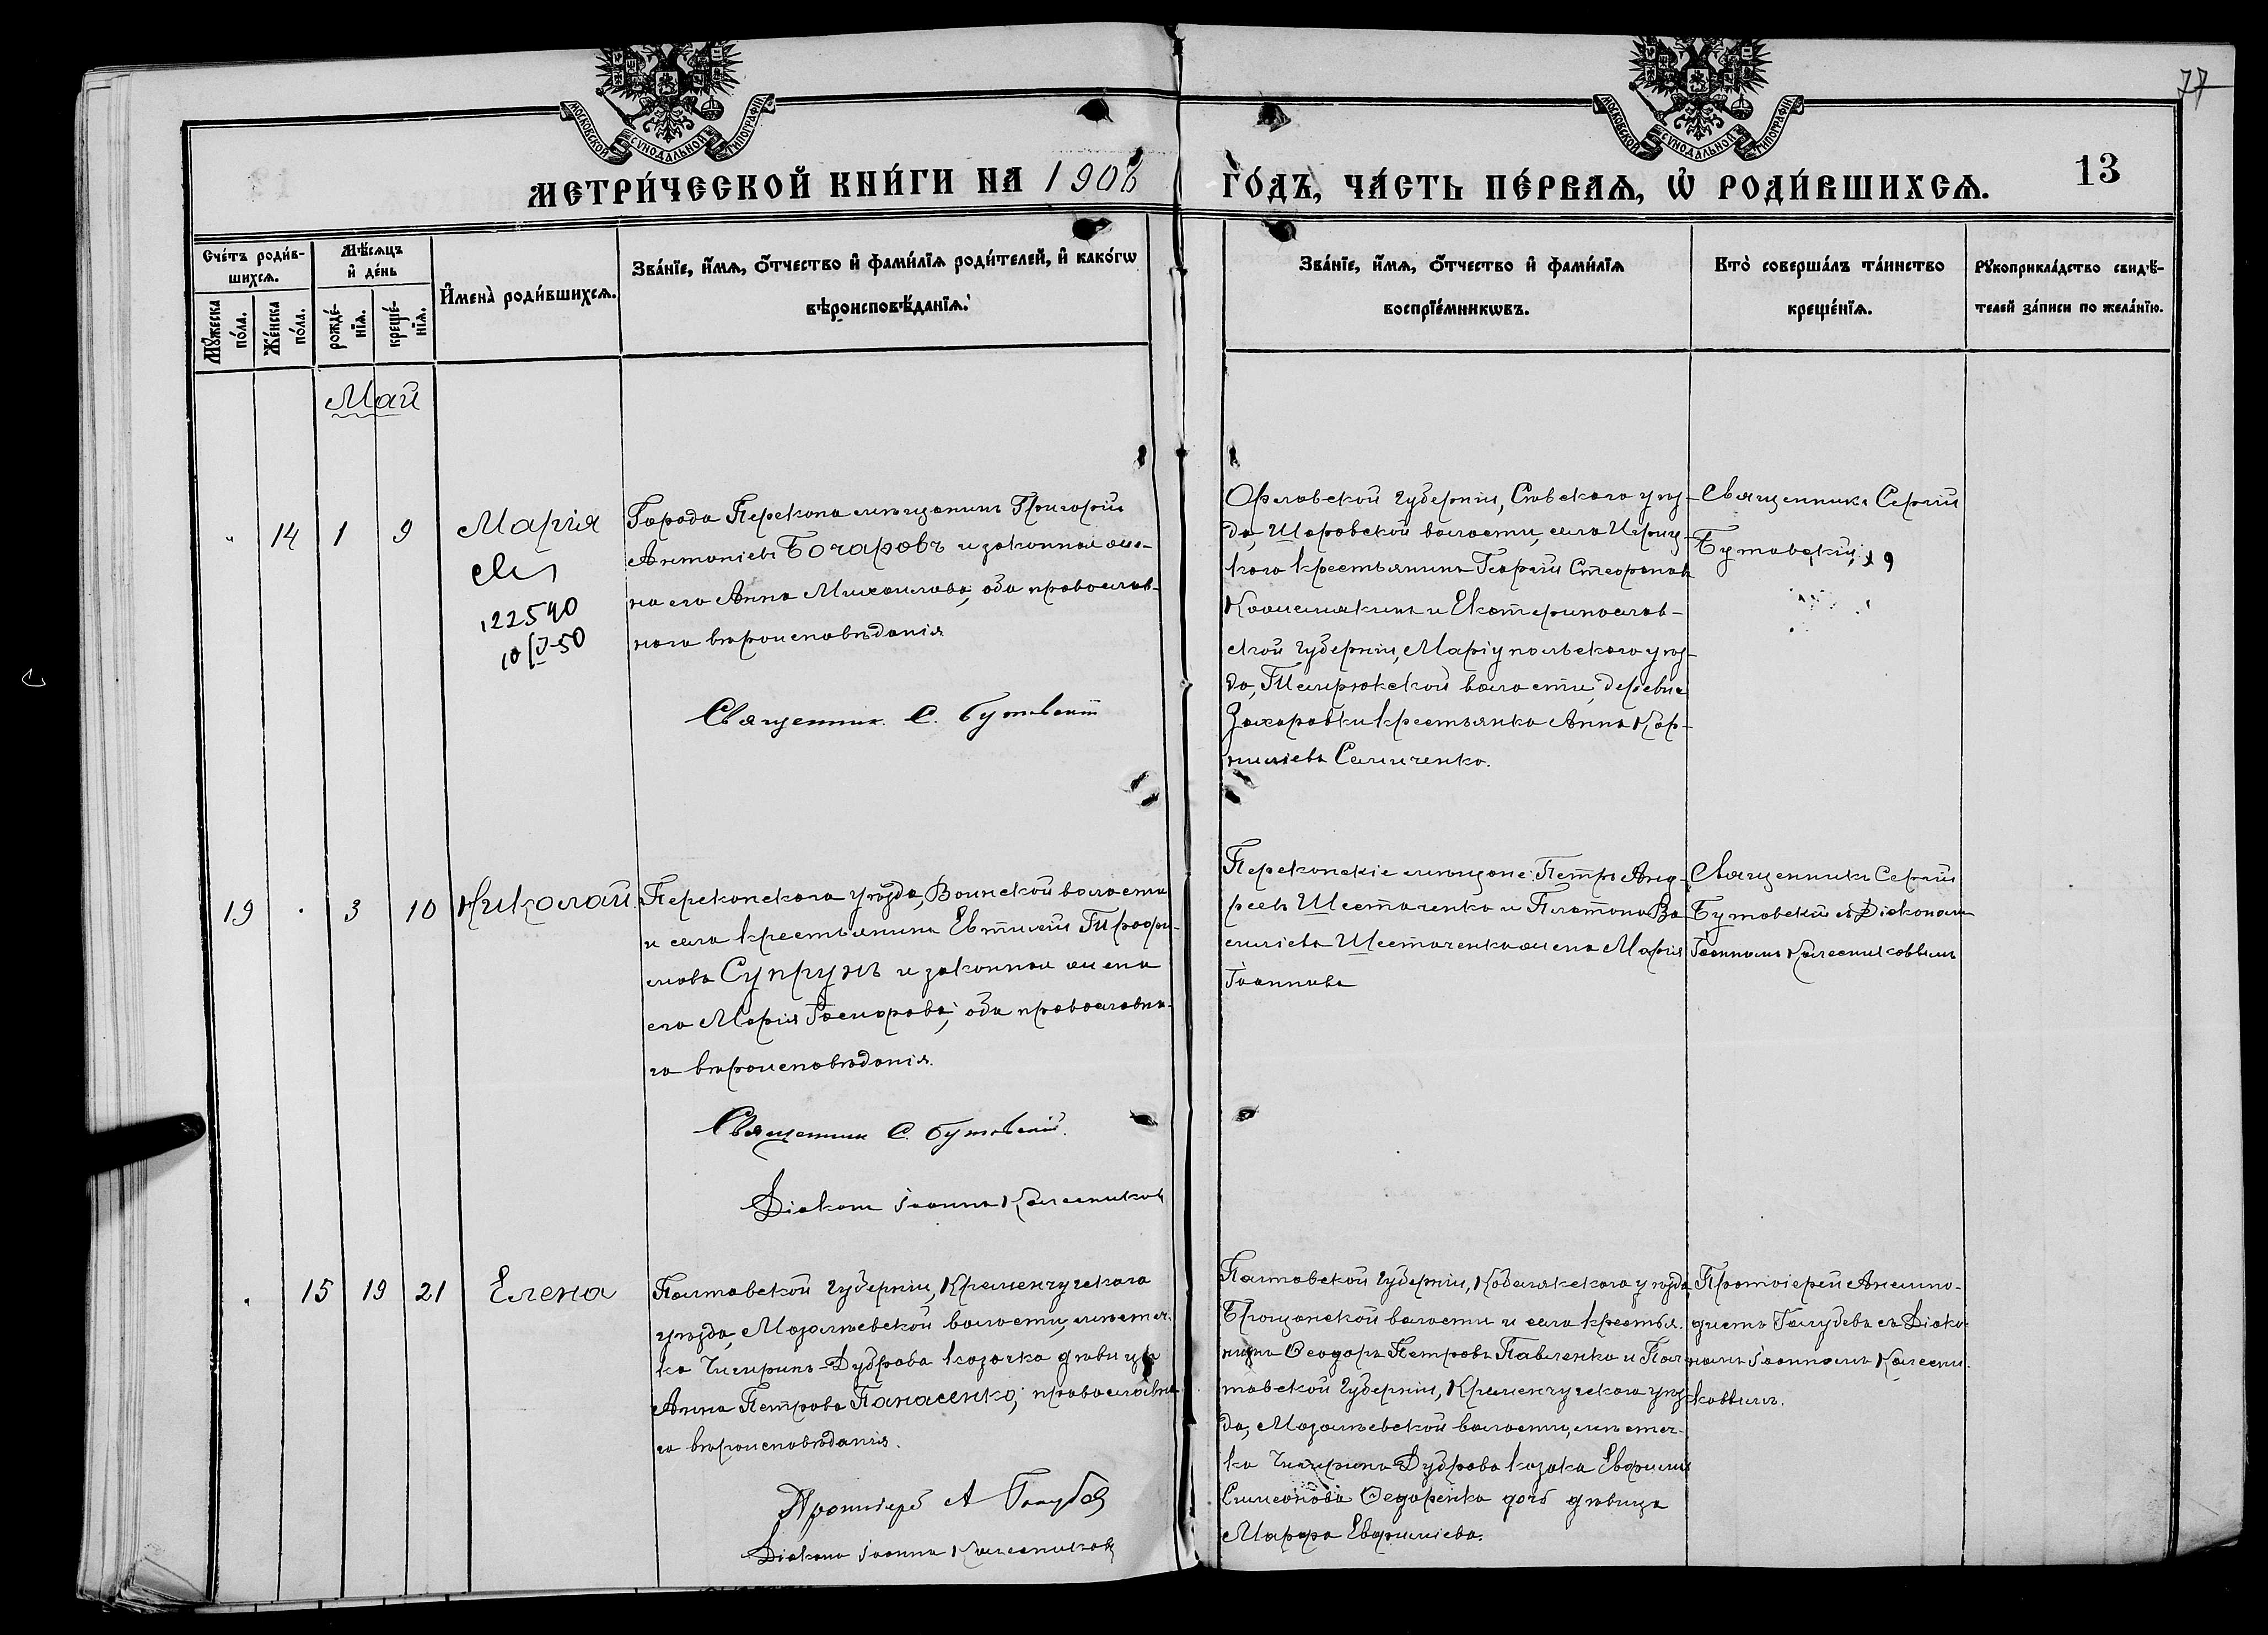 77
МОСКОВСКОЙ СѴНОДАЛЬНОЙ ТИПОГРАФІИ
МОСКОВСКОЙ СѴНОДАЛЬНОЙ ТИПОГРАФІИ
МЕТРИ́ЧЕСКОЙ КНИ́ГИ НА 1908
ГО́ДЪ, ЧА́СТЬ ПЕ́РВАЯ, Ѽ РОДИ́ВШИХСЯ.
13
Сче́тъ роди́в-
шихся.
Мꙋ́жеска
по́ла.
Же́нска
по́ла.
Мѣ́сяцъ
и҆ де́нь
рожде́-
нїя.
креще́-
нїя.
И҆мена̀ роди́вшихся.
Зва́нїе, и҆́мя, ѻ҆́тчество и҆ фами́лїя роди́телей, и҆ како́гѡ
вѣроисповѣ́данїя.
Зва́нїе, и҆́мя, ѻ҆́тчество и҆ фами́лїя
воспрїе́мникѡвъ.
Кто̀ соверша́лъ та́инство
креще́нїя.
Рꙋкоприкла́дство свидѣ́-
телей за́писи по жела́нїю.
Май
" 14 1 9 Марія
122540
10/V-50
Города Перекопа мѣщанинъ Григорій
Антоніевъ Бочаровъ и законная же-
на его Анна Михаилова, оба православ-
наго вѣроисповѣданія
Священникъ С. Бутовскій
Орловской губерніи, Сѣвскаго уѣз-
да, Шаровской волости, села
каго крестьянинъ Георгій Стефановъ
и Екатеринослав-
ской губерніи, Маріупольскаго уѣз-
да, Темрюкской волости, деревни
Захаровки крестьянка Анна Кор-
ниліева
Священникъ Сергій
Бутовскій
19 . 3 10 Николай
Перекопскаго уѣзда, Воинской волости
и села крестьянинъ Евтихій Трофи-
мовъ Супрунъ и законная жена
его Марія оба православна-
го вѣроисповѣданія.
Священникъ С. Бутовскій.
Діаконъ Іоаннъ Колесниковъ
Перекопскіе мѣщане: Петръ Анд-
реевъ Шестаченко и Платона Ва-
силіева Шестаченка жена Марія
Іоаннова
Священникъ Сергій
Бутовскій съ Діакономъ
Іоанномъ Колесниковымъ
. 15 19 21 Елена
Полтавской губерніи, Кременчугскаго
уѣзда, Мозолѣевской волости, мѣстеч-
ка Чигринъ-Дуброва козачка дѣвица
Анна Петрова Панасенко, православна-
го вѣроисповѣданія.
Протоіерей А Голубевъ
Діаконъ Іоаннъ Колесниковъ
Полтавской губерніи, Кобелякскаго уѣзда
волости и села крестья-
нинъ Ѳеодоръ Петровъ Павленко и Пол-
тавской губерніи, Кременчугскаго уѣз-
да, Мозолѣевской волости, мѣстеч-
ка Чигринъ Дуброва козака Евфимія
Симеонова Ѳедоренка дочь дѣвица
Марфа Евфиміева.
Протоіерей Анемпо-
дистъ Голубевъ съ Діако-
номъ Іоанномъ Колесни-
ковымъ.